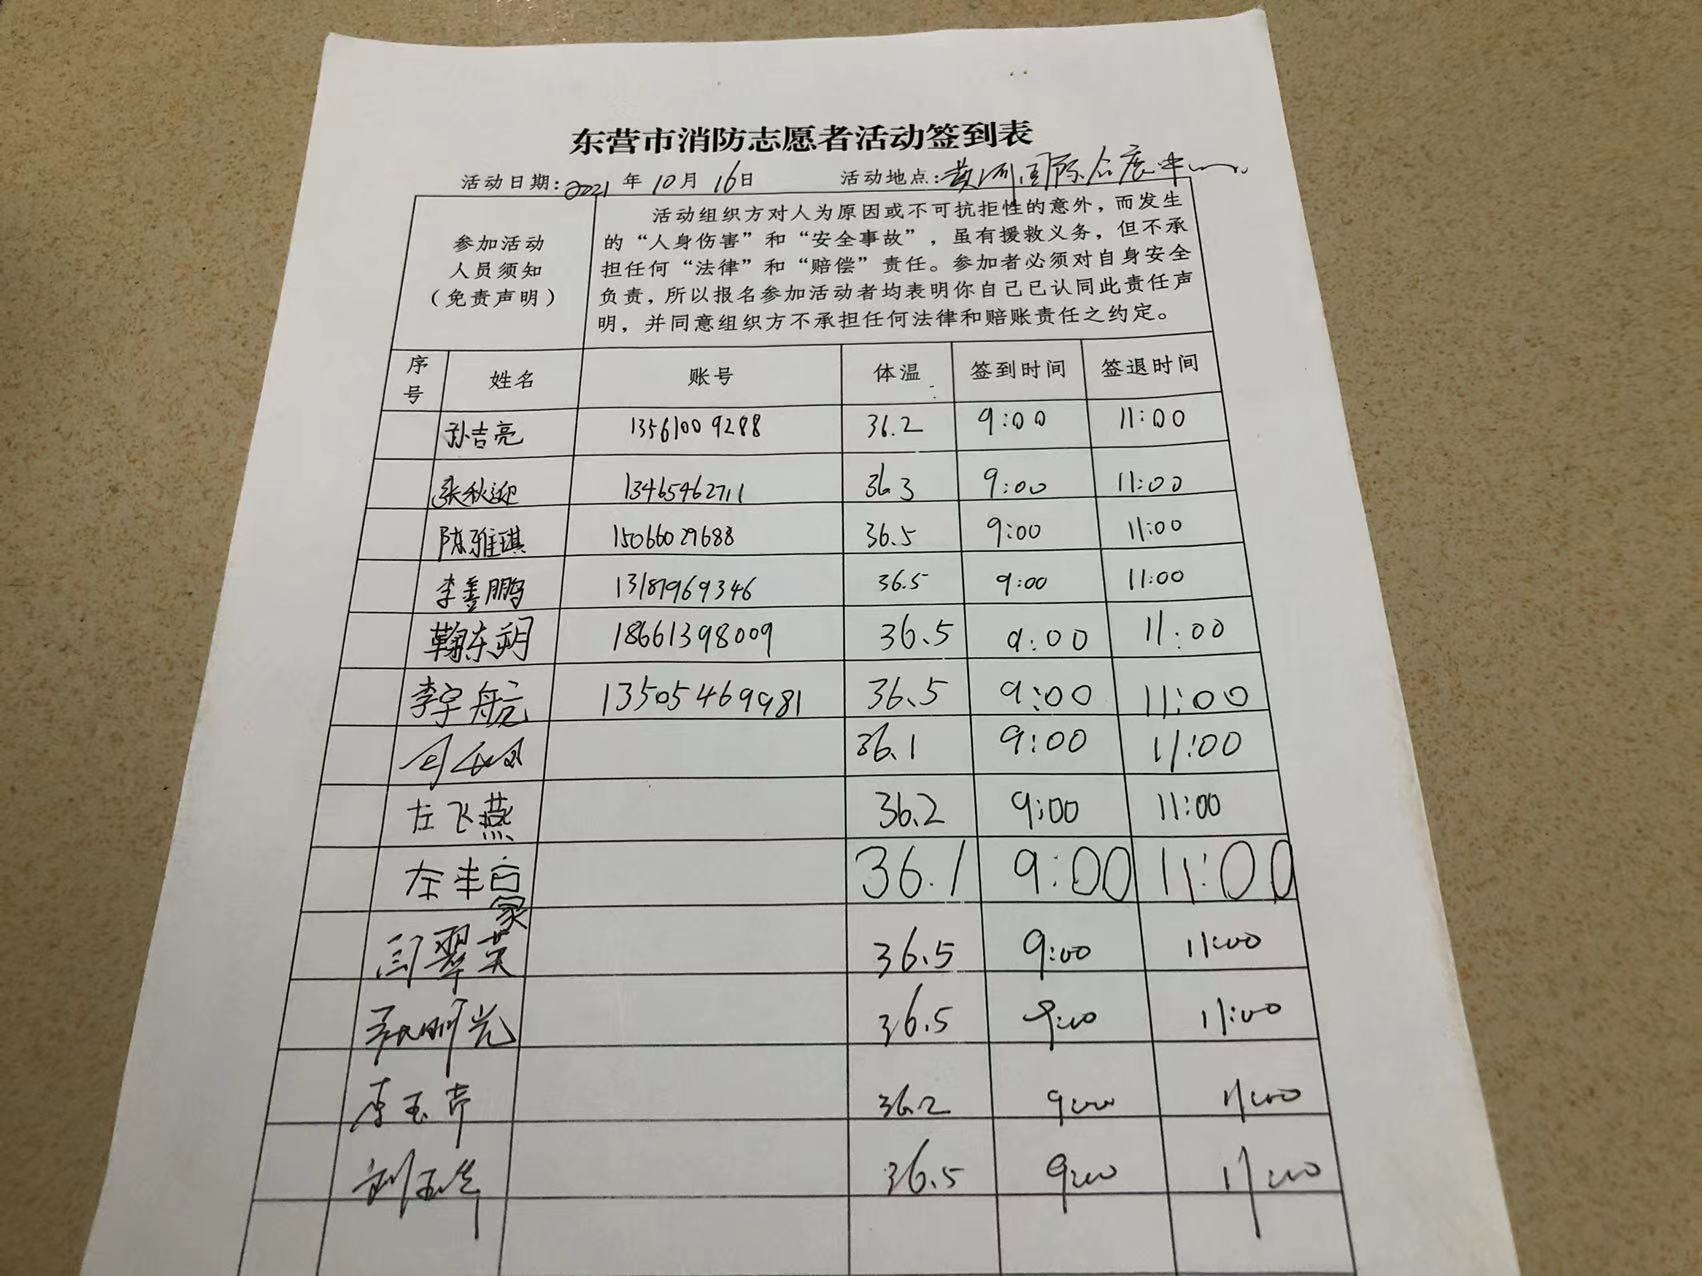 东营市消防志愿者活动签到表
活动日期:2021 年 10 月 16 日 活动地点:黄河国际会展中心
参加活动
人员须知
(免责声明)
活动组织方对人为原因或不可抗拒性的意外，而发生
的“人身伤害”和“安全事故”，虽有援救义务，但不承
担任何“法律”和“赔偿”责任。参加者必须对自身安全
负责，所以报名参加活动者均表明你自己已认同此责任声
明，并同意组织方不承担任何法律和赔账责任之约定。
序号 姓名 账号 体温 签到时间 签退时间
孙吉亮 13561009288 36.2 9:00 11:00
张秋迎 13465462711 36.3 9:00 11:00
陈雅琪 15066029688 36.5 9:00 11:00
李善鹏 13181969346 36.5 9:00 11:00
鞠东朔 18661398009 36.5 9:00 11:00
李宇航 13505469981 36.5 9:00 11:00
36.1 9:00 11:00
左飞燕 36.2 9:00 11:00
左丰 36.1 9:00 11:00
闫翠英 36.5 9:00 11:00
明光 36.5 9:00 11:00
李玉芹 36.2 9:00 11:00
刘玉 36.5 9:00 11:00